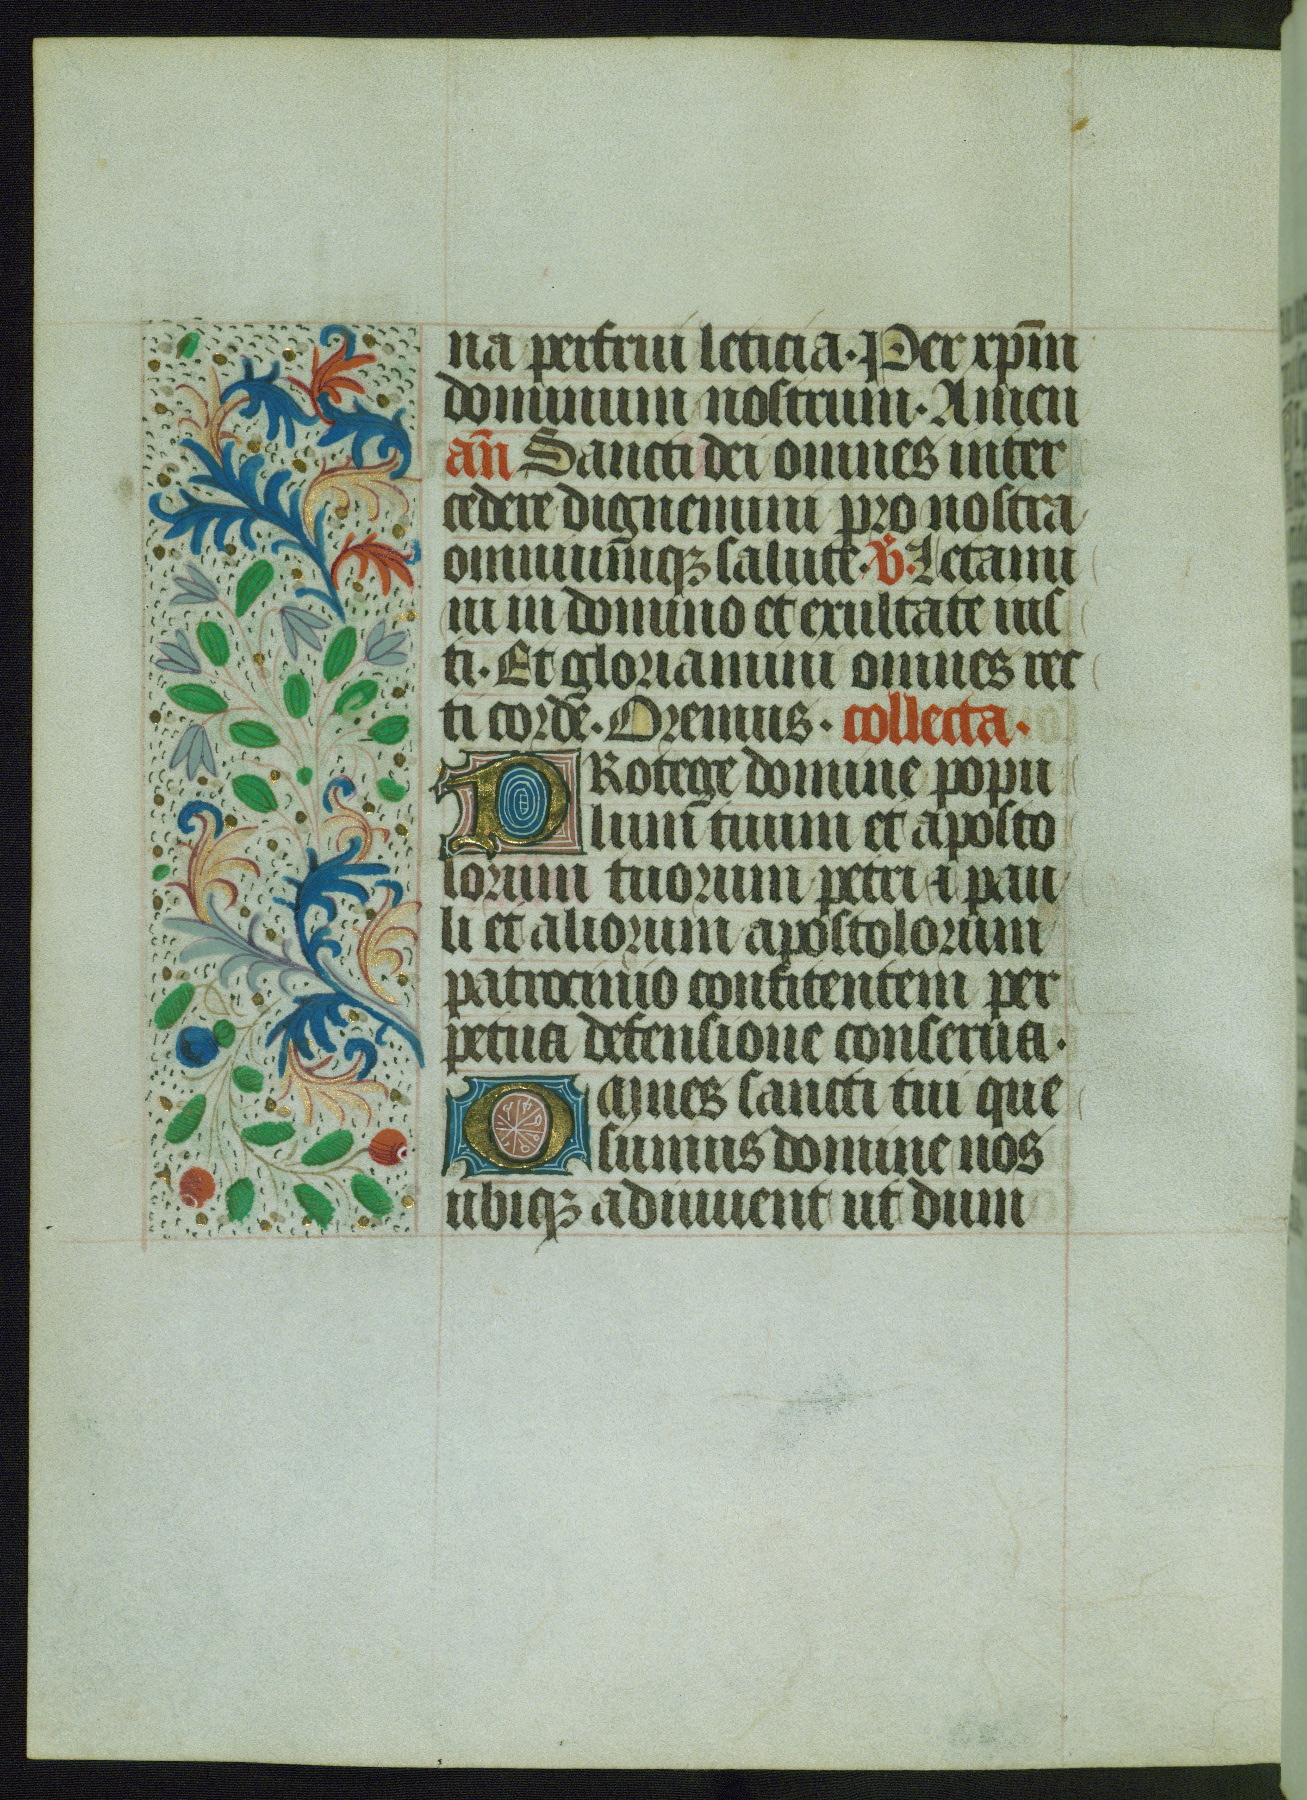 na perfrui leticia. Per xp̄m
dominum nostrum. Amen
an̄ Sancti dei omnes inter
cedere dignemini pro nostra
omniumq̄ꝫ salute. v̄. Letami
ni in domino et exultate ius
ti. Et gloriamini omnes rec
ti corde. Oremus. collecta.
PRotege domine popu
lum̄ tuum et aposto
lorum tuorum petri ⁊ pau
li et aliorum apostolorum
patrocinio confitentem per
petua defensione conserua.
Omnes sancti tui que
sumus domine nos
ubiqꝫ adiuuent ut dum